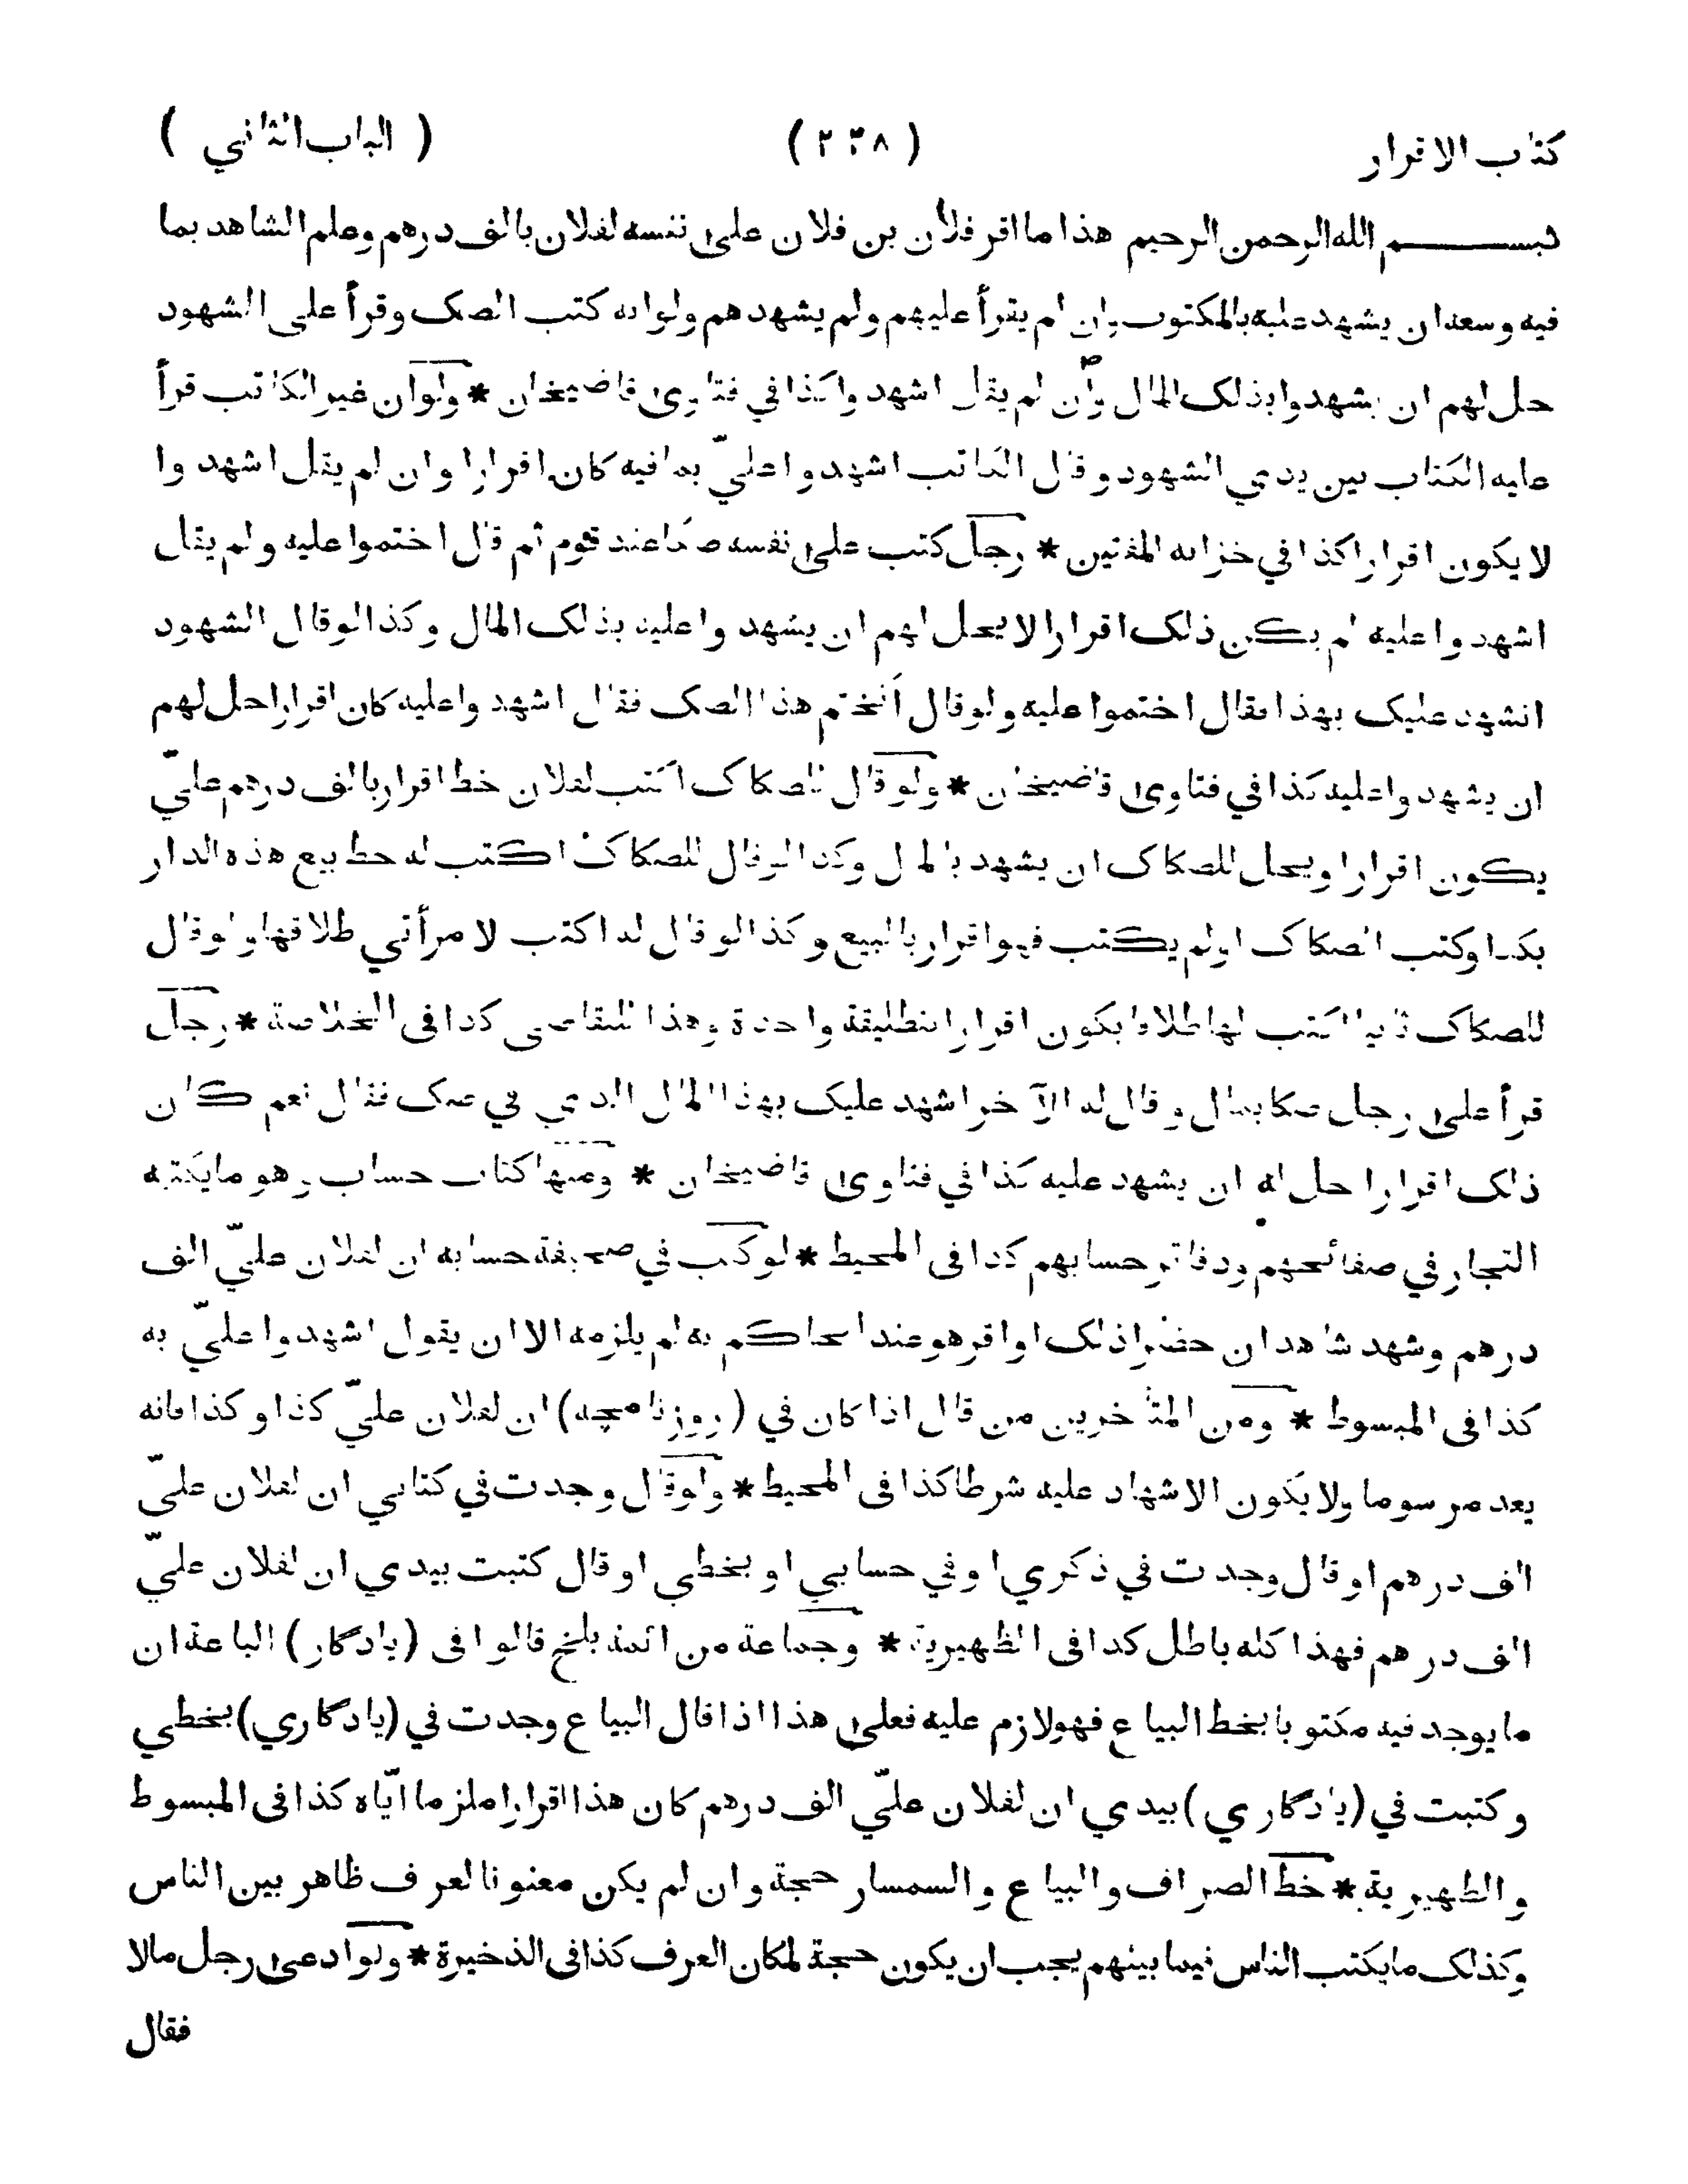 كتاب الاقرار ( ٢٣٨ ) ( الباب الثاني )
بسم الله الرحمن الرحيم هذا ما اقر فلان بن فلان على نفسه لفلان بالف درهم وعلم الشاهد بما
فيه وسعه ان يشهد عليه بالمكتوب وان لم يقرأ عليهم ولم يشهدهم ولو انه كتب الصك وقرأ على الشهود
حل لهم ان يشهدوا بذلك المال وان لم يقل اشهدوا كذا في فتاوى قاضيخان * ولو ان غير الكاتب قرأ
عليه الكتاب بين يدي الشهود وقال الكاتب اشهدوا عليّ بما فيه كان اقرارا وان لم يقل اشهدوا
لا يكون اقرارا كذا في خزانه المفتين * رجل كتب على نفسه صكا عند قوم ثم قال اختموا عليه ولم يقل
اشهدوا عليه لم يكن ذلك اقرارا لا يحل لهم ان يشهدوا عليه بذلك المال وكذا لو قال الشهود
انشهد عليك بهذا فقال اختموا عليه ولو قال أنختم هذا الصك فقال اشهدوا عليه كان اقرارا حل لهم
ان يشهدوا عليه كذا في فتاوى قاضيخان * ولو قال للصكاك اكتب لفلان خط اقرار بالف درهم عليّ
يكون اقرارا ويحل للصكاك ان يشهد بالمال وكذا لو قال للصكاك اكتب له خط بيع هذه الدار
بكذا وكتب الصكاك او لم يكتب فهو اقرار بالبيع وكذا لو قال له اكتب لامرأتي طلاقها ولو قال
للصكاك ثانيا اكتب لها طلاقا يكون اقرارا بتطليقة واحدة وهذا للتقاضى كذا فى الخلاصة * رجل
قرأ على رجل صكا بمال وقال له الآخر اشهد عليك بهذا المال الذي في صك فقال نعم كان
ذلك اقرارا حل له ان يشهد عليه كذا في فتاوى قاضيخان * ومنها كتاب حساب وهو ما يكتبه
التجار في صفائحهم ودفاتر حسابهم كذا فى المحيط * لو كتب في صحيفة حسابه ان لفلان عليّ الف
درهم وشهد شاهدان حضرا ذلك او اقر هو عند الحاكم به لم يلزمه الا ان يقول اشهدوا عليّ به
كذا فى المبسوط * ومن المتأخرين من قال اذا كان في (روزنامچه) ان لفلان عليّ كذا وكذا فانه
يعد مرسوما ولا يكون الاشهاد عليه شرطا كذا فى المحيط * ولو قال وجدت في كتابي ان لفلان عليّ
الف درهم او قال وجدت في ذكري او في حسابي او بخطى او قال كتبت بيدي ان لفلان عليّ
الف درهم فهذا كله باطل كذا فى الظهيرية * وجماعة من ائمة بلخ قالوا فى (يادگار) الباعة ان
ما يوجد فيه مكتوبا بخط البياع فهو لازم عليه فعلى هذا اذا قال البياع وجدت في (يادگاري) بخطي
وكتبت في (يادگاري) بيدي ان لفلان عليّ الف درهم كان هذا اقرارا ملزما ايّاه كذا فى المبسوط
والظهيرية * خط الصراف والبياع والسمسار حجة وان لم يكن معنونا لعرف ظاهر بين الناس
وكذلك ما يكتب الناس فيما بينهم يجب ان يكون حجة لمكان العرف كذا فى الذخيرة * ولو ادعى رجل مالا
فقال